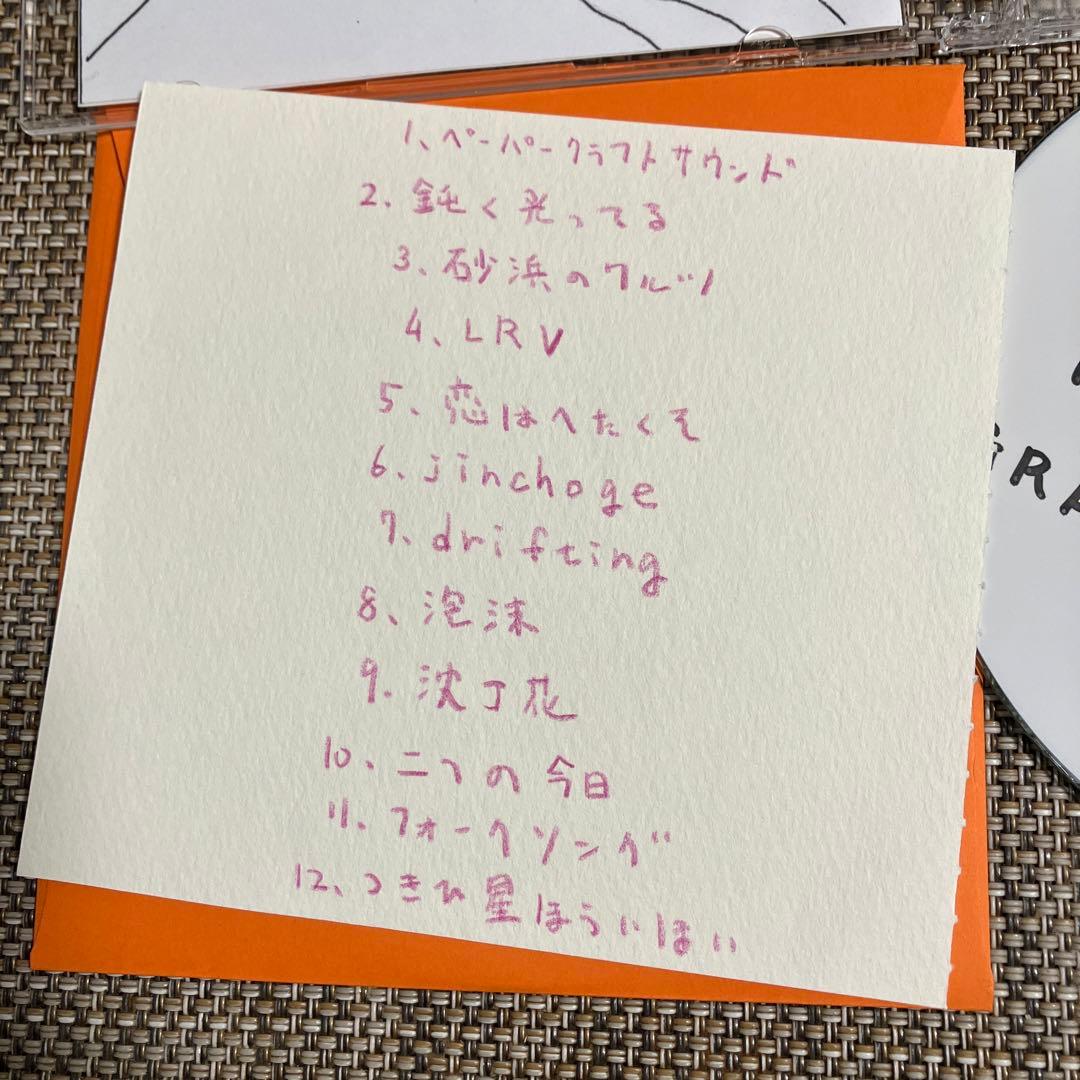 1、ペーパークラフトサウンド
2、鈍く光ってる
3、砂浜のワルツ
4、LRV
5、恋はへたくそ
6、jinchoge
7、drifting
8、泡沫
9、沈丁花
10、二つの今日
11、フォークソング
12、つきひ星ほういほい